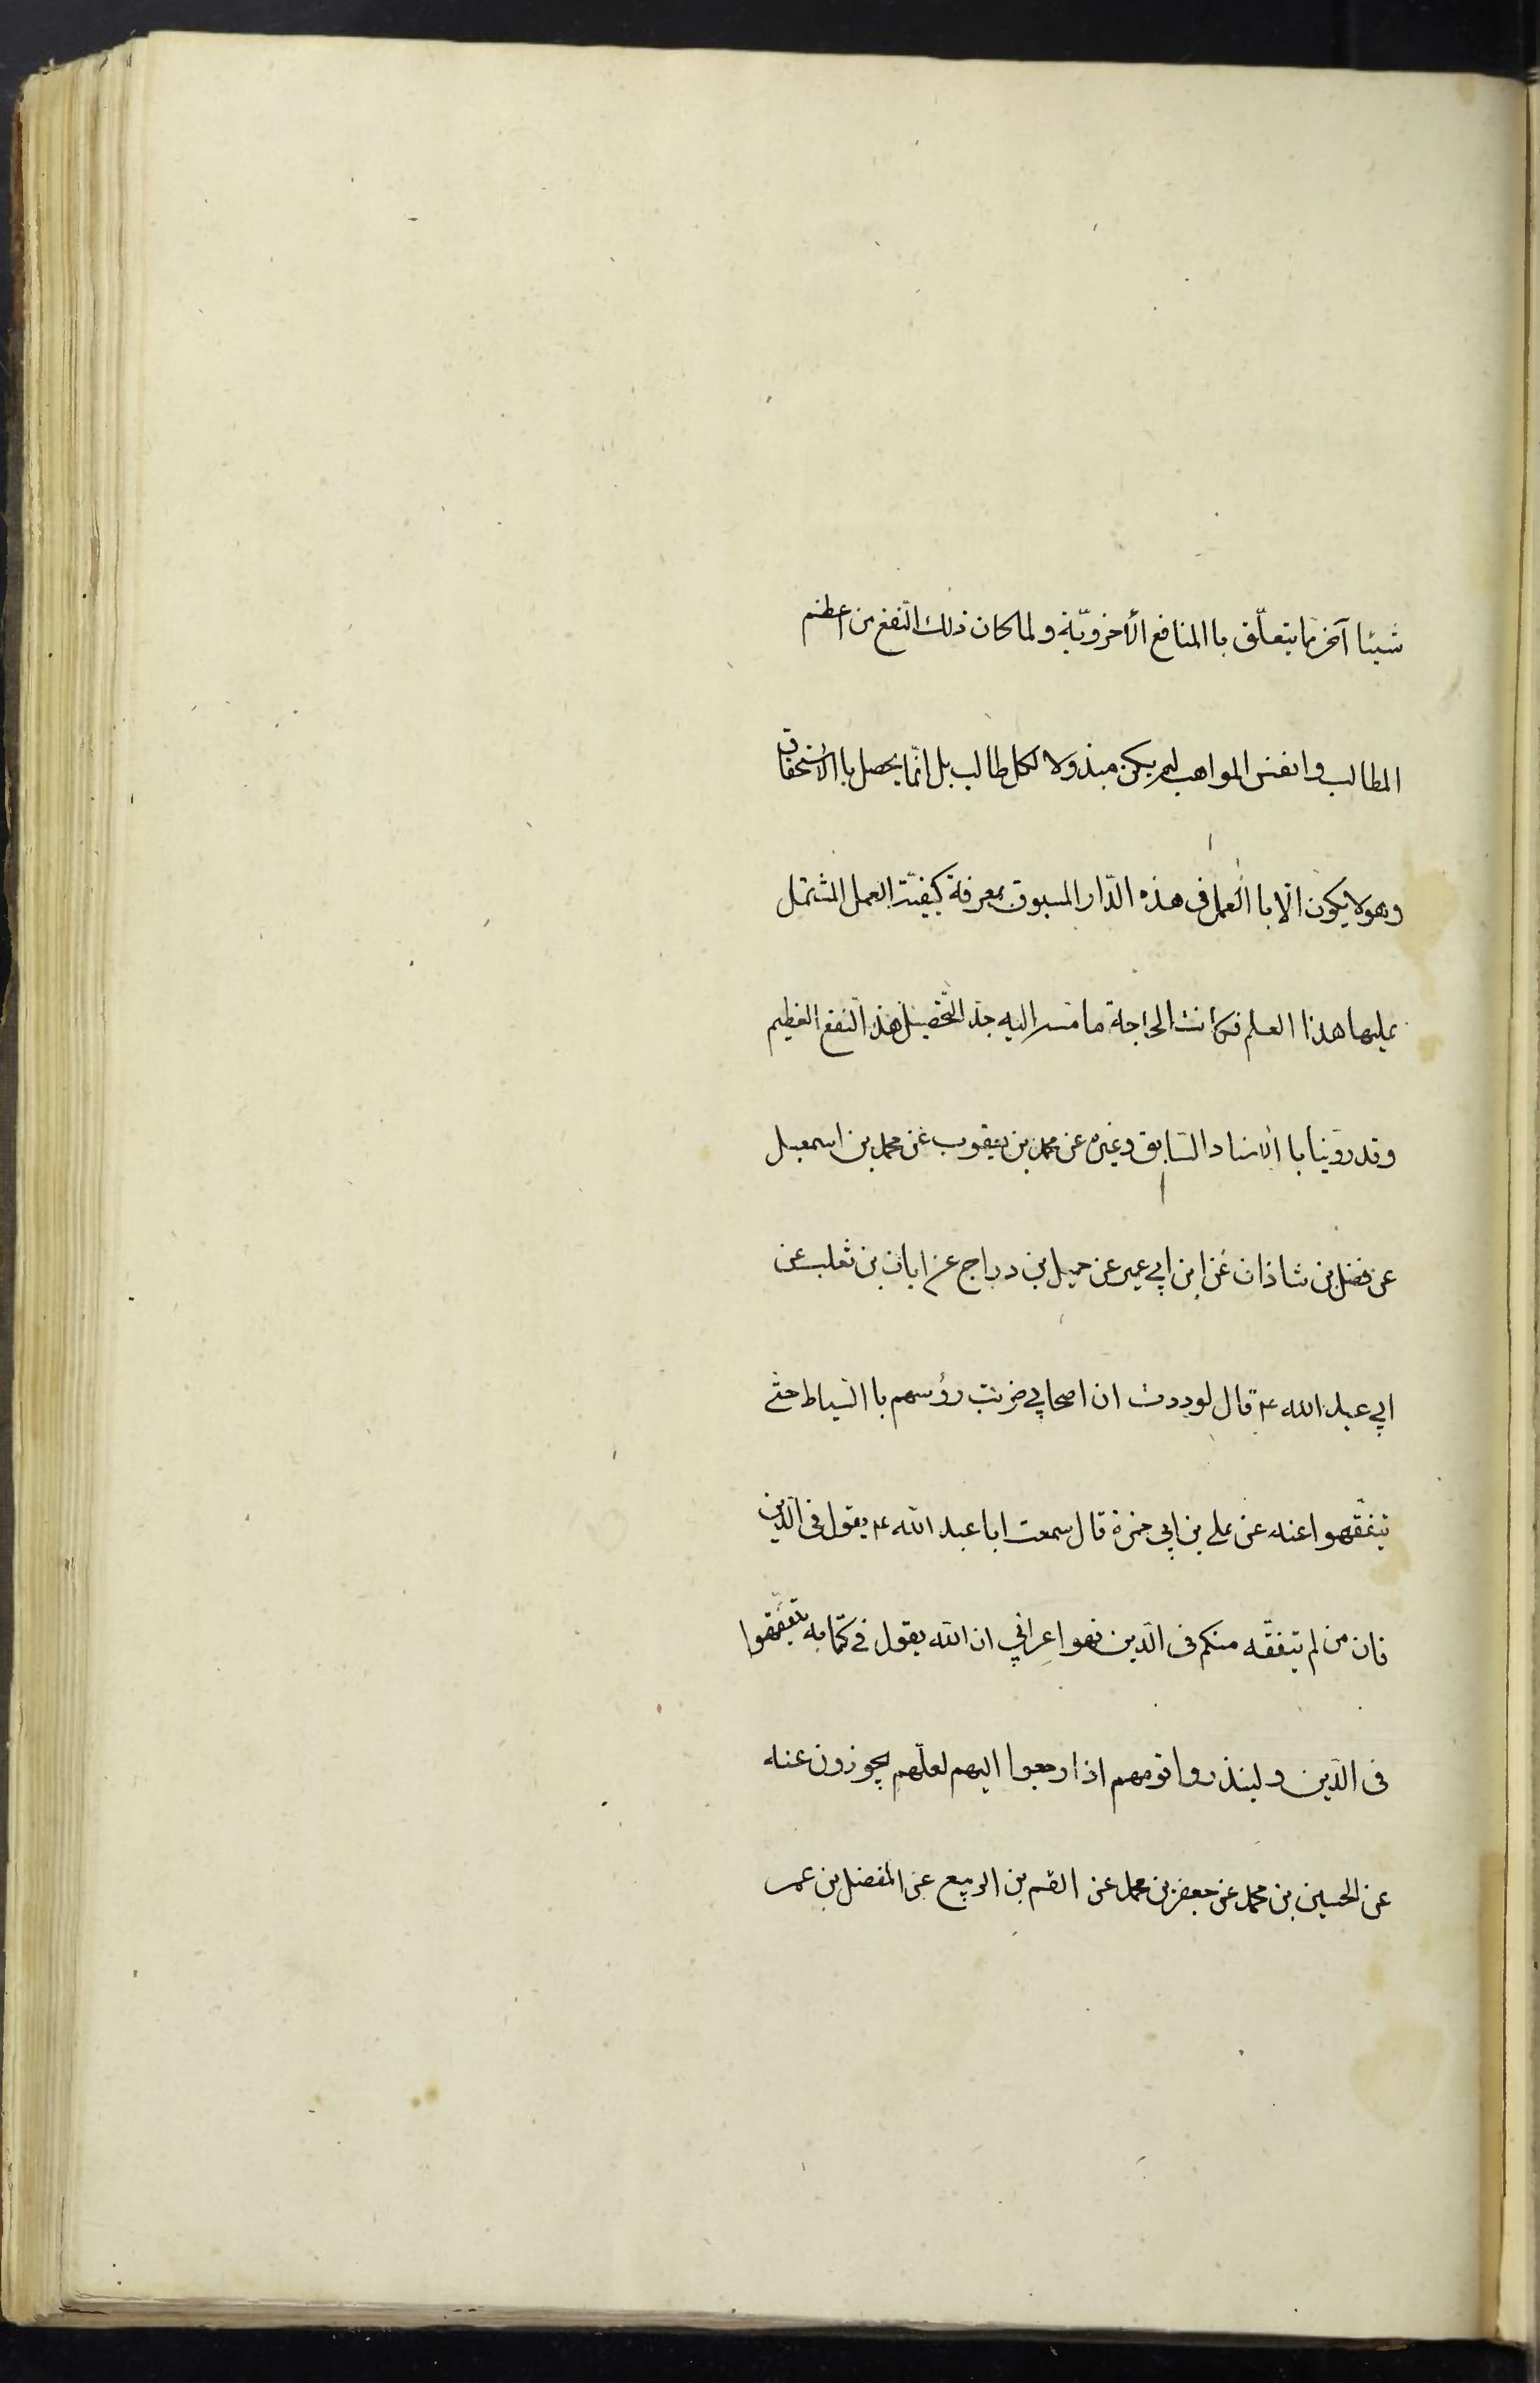 شيئا آخر مما يتعلّق با المنافع الأخرويّة ولما كان ذلك النّفع من اعظم
المطالب وانفس المواهب لم يكن مبذولا لكل طالب بل انّما يحصل با الاستحقاق
وهو لا يكون الّا با العمل فى هذه الدّار المسبوق بمعرفة كيفيّة العمل المشتمل
عليها هذا العلم فكانت الحاجة ماسة اليه جدّ التّحصيل هذ النّفع العظيم
وقد روّينا با الاسناد السّابق وغيره عن محمد بن يعقوب عن محمد بن اسمعيل
عن فضل بن شاذان عن ابن ابي عمير عن جميل بن دراج عن ابان بن ثعلب عن
ابي عبد الله ع قال لوددت ان اصحابي ضربت رؤسهم با السّياط حتّى
تيفقّهوا عنه عن على بن ابى حمزة قال سمعت ابا عبد الله ع يقول فى الدّين
فان من لم تيفقّه منكم فى الدّين فهو اعرابي ان الله يقول في كتابه يتفقّهوا
فى الدّين ولينذروا قومهم اذا رجعوا اليهم لعلّهم يحوزون عنه
عن الحسين بن محمد عن جعفر بن محمد عن القسم بن الربيع عن المفضل بن عمر